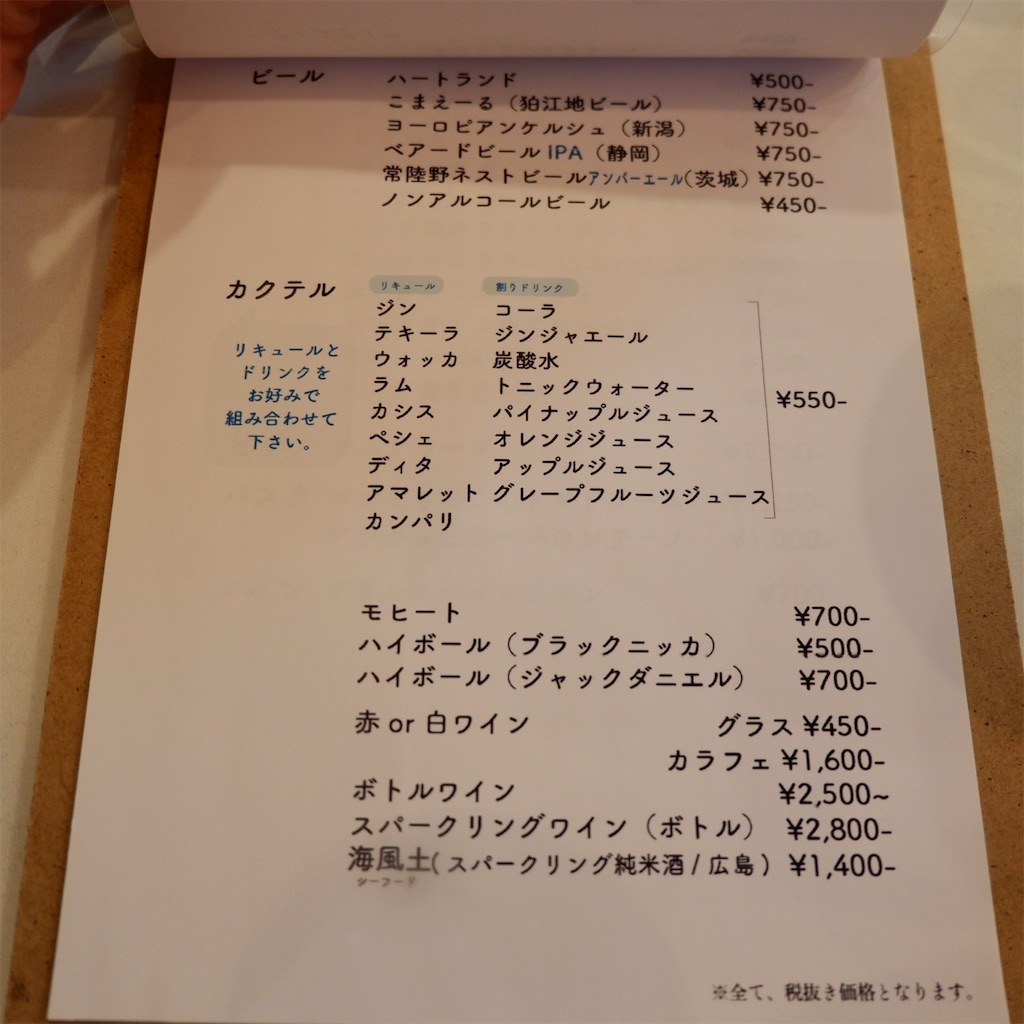 ビール ハートランド ¥500-
こまえーる（狛江地ビール） ¥750-
ヨーロピアンケルシュ（新潟） ¥750-
ベアードビール IPA（静岡） ¥750-
常陸野ネストビールアンバーエール（茨城） ¥750-
ノンアルコールビール ¥450-
カクテル リキュール 割りドリンク
リキュールと
ドリンクを
お好みで
組み合わせて
下さい。
ジン コーラ
テキーラ ジンジャエール
ウォッカ 炭酸水
ラム トニックウォーター
¥550-
カシス パイナップルジュース
ペシェ オレンジジュース
ディタ アップルジュース
アマレット グレープフルーツジュース
カンパリ
モヒート ¥700-
ハイボール（ブラックニッカ） ¥500-
ハイボール（ジャックダニエル） ¥700-
赤 or 白ワイン グラス ¥450-
カラフェ ¥1,600-
ボトルワイン ¥2,500~
スパークリングワイン（ボトル） ¥2,800-
海風土( スパークリング純米酒 / 広島 ) ¥1,400-
シーフード
※全て、税抜き価格となります。